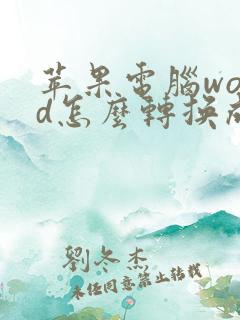 苹果電腦wo
d怎麼轉換成
劉冬杰
未经同意禁止转载